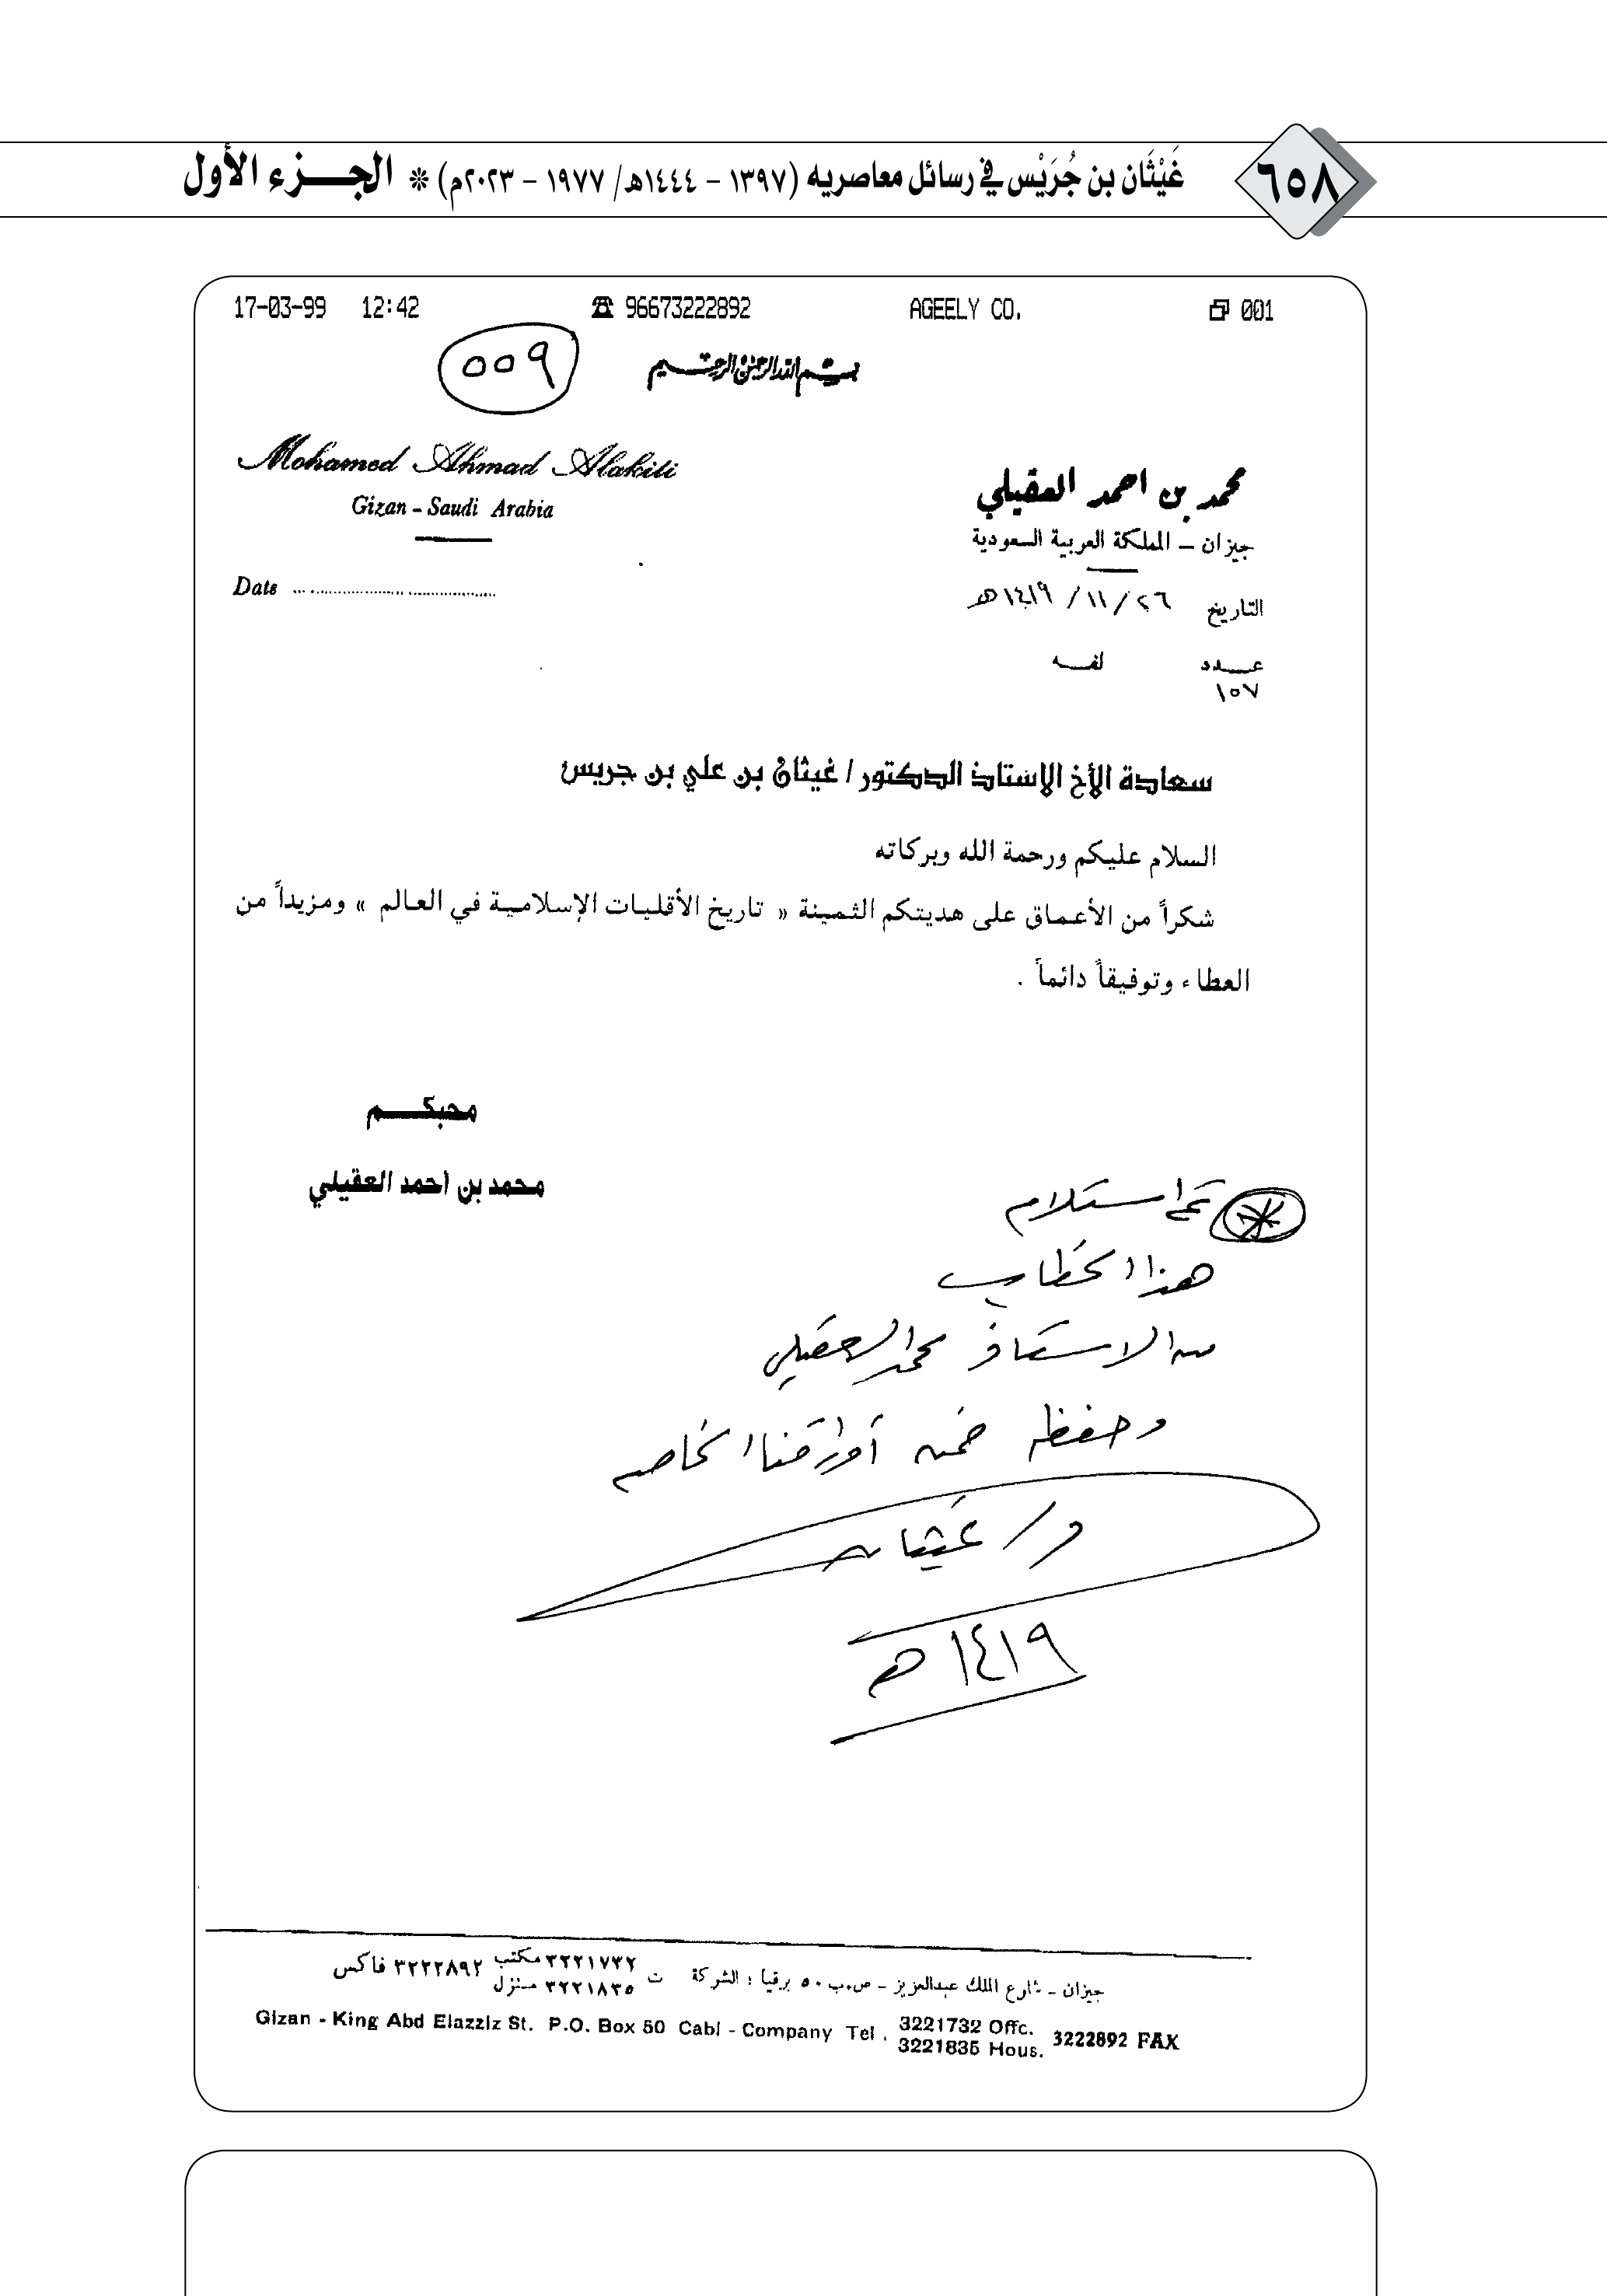 ٦٥٨
غَيْثَان بن جُرَيْس في رسائل معاصريه (١٣٩٧ - ١٤٤٤هـ/ ١٩٧٧ - ٢٠٢٣م) * الجزء الأول
17-03-99 12:42 ☎ 96673222892 AGEELY CO. 001
٥٥٩
بسم الله الرحمن الرحيم
Mohamed Ahmad Alakili
Gizan - Saudi Arabia
Date
محمد بن احمد العقيلي
جيزان - المملكة العربية السعودية
التاريخ ٢٦/ ١١/ ١٤١٩هـ
عدد لفه
١٥٧
سعادة الأخ الاستاذ الدكتور / غيثان بن علي بن جريس
السلام عليكم ورحمة الله وبركاته
شكراً من الأعماق على هديتكم الثمينة « تاريخ الأقليات الإسلامية في العالم » ومزيداً من
العطاء وتوفيقاً دائماً .
محبكم
محمد بن أحمد العقيلي
تم استلام
هذا الخطاب
من الاستاذ محمد العقيلي
وحفظ ضمن أوراقنا الخاصه
د/ غيثان
١٤١٩هـ
جيزان - شارع الملك عبدالعزيز - ص.ب ٥٠ برقيا : الشركة ت ٣٢٢١٧٣٢ مكتب ٣٢٢٢٨٩٢ فاكس
٣٢٢١٨٣٥ منزل
Gizan - King Abd Elazziz St. P.O. Box 50 Cabl - Company Tel . 3221732 Offc. 3222892 FAX
3221835 Hous.